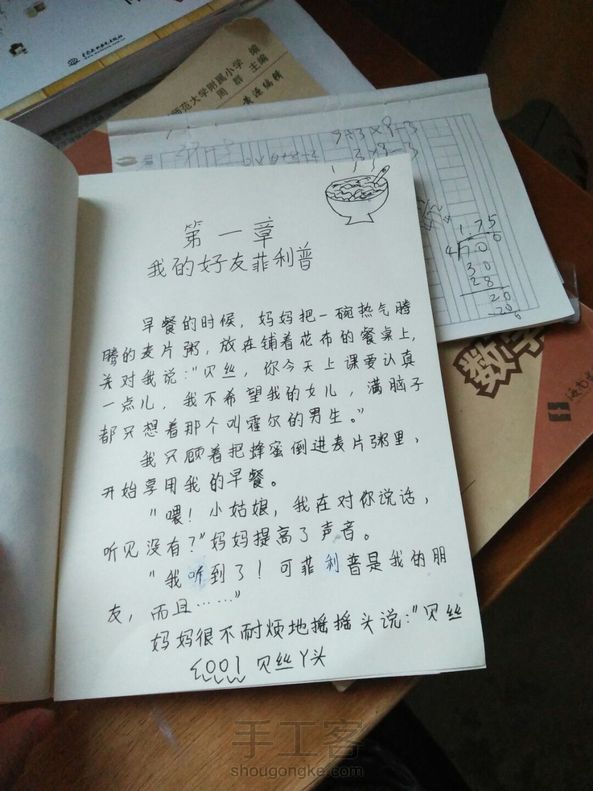 师范大学附属小学 编
周群 主编
第一章
我的好友菲利普
早餐的时候，妈妈把一碗热气腾
腾的麦片粥，放在铺着花布的餐桌上，
关对我说："贝丝，你今天上课要认真
一点儿，我不希望我的女儿，满脑子
都只想着那个叫霍尔的男生。"
我只顾着把蜂蜜倒进麦片粥里，
开始享用我的早餐。
"喂！小姑娘，我在对你说话，
听见没有？"妈妈提高了声音。
"我听到了！可菲利普是我的朋
友，而且……"
妈妈很不耐烦地摇摇头说："贝丝
贝丝丫头
1.75
4 70
30
28
20
20
0
数学
手工客
shougongke.com